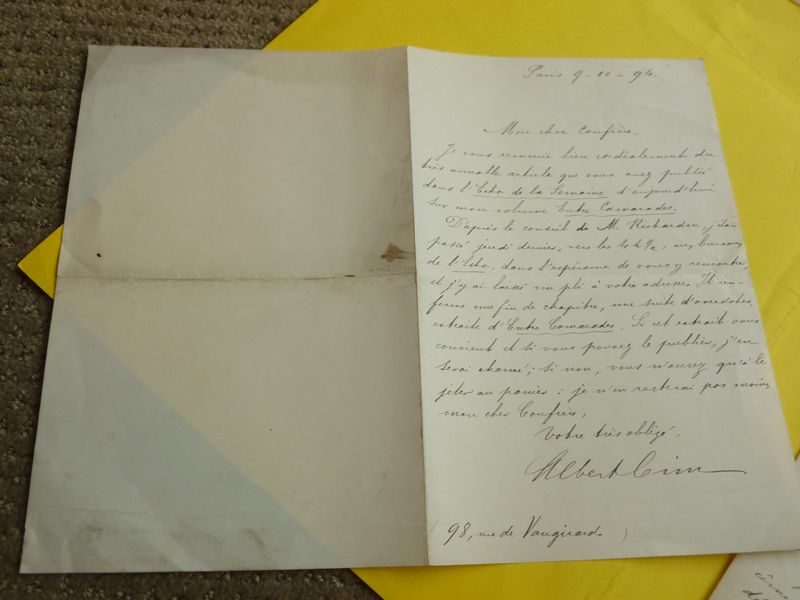 Paris 9-10-94.
Mon cher Confrère,
Je vous remercie bien cordialement du
très aimable article que vous avez publié
dans l'Echo de la Semaine d'aujourd'hui
sur mon volume Entre Camarades.
D'après le conseil de M. Richardin, j'étais
passé jeudi dernier, vers les 4 h ½, aux bureaux
de l'Echo, dans l'espérance de vous y rencontrer,
et j'y ai laissé un pli à votre adresse. Il ren-
ferme une fin de chapitre, une suite d'anecdotes,
extraite d'Entre Camarades. Si cet extrait vous
convient et si vous pouvez le publier, j'en
serai charmé; si non, vous n'aurez qu'à le
jeter au panier: je n'en resterai pas moins,
mon cher Confrère,
Votre très obligé.
Albert Cim
(98, rue de Vaugirard)